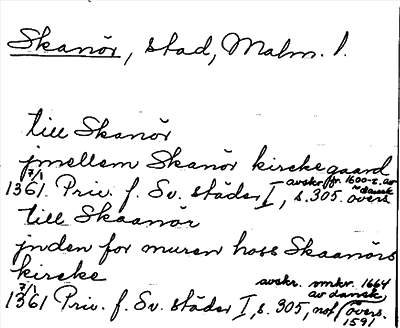 Skanör, stad, Malm. l.
till Skanör
jmellem Skanör kirkegaard
7/1 1361 Priv. f. Sv. städer I, s. 305. avskr. fr. 1600-t. av dansk övers.
till Skaanör
jnden for muren hoss Skaanörs
kircke
7/1 1361 Priv. f. Sv. städer I, s. 305, not avskr. omkr. 1664 av dansk övers. 1591